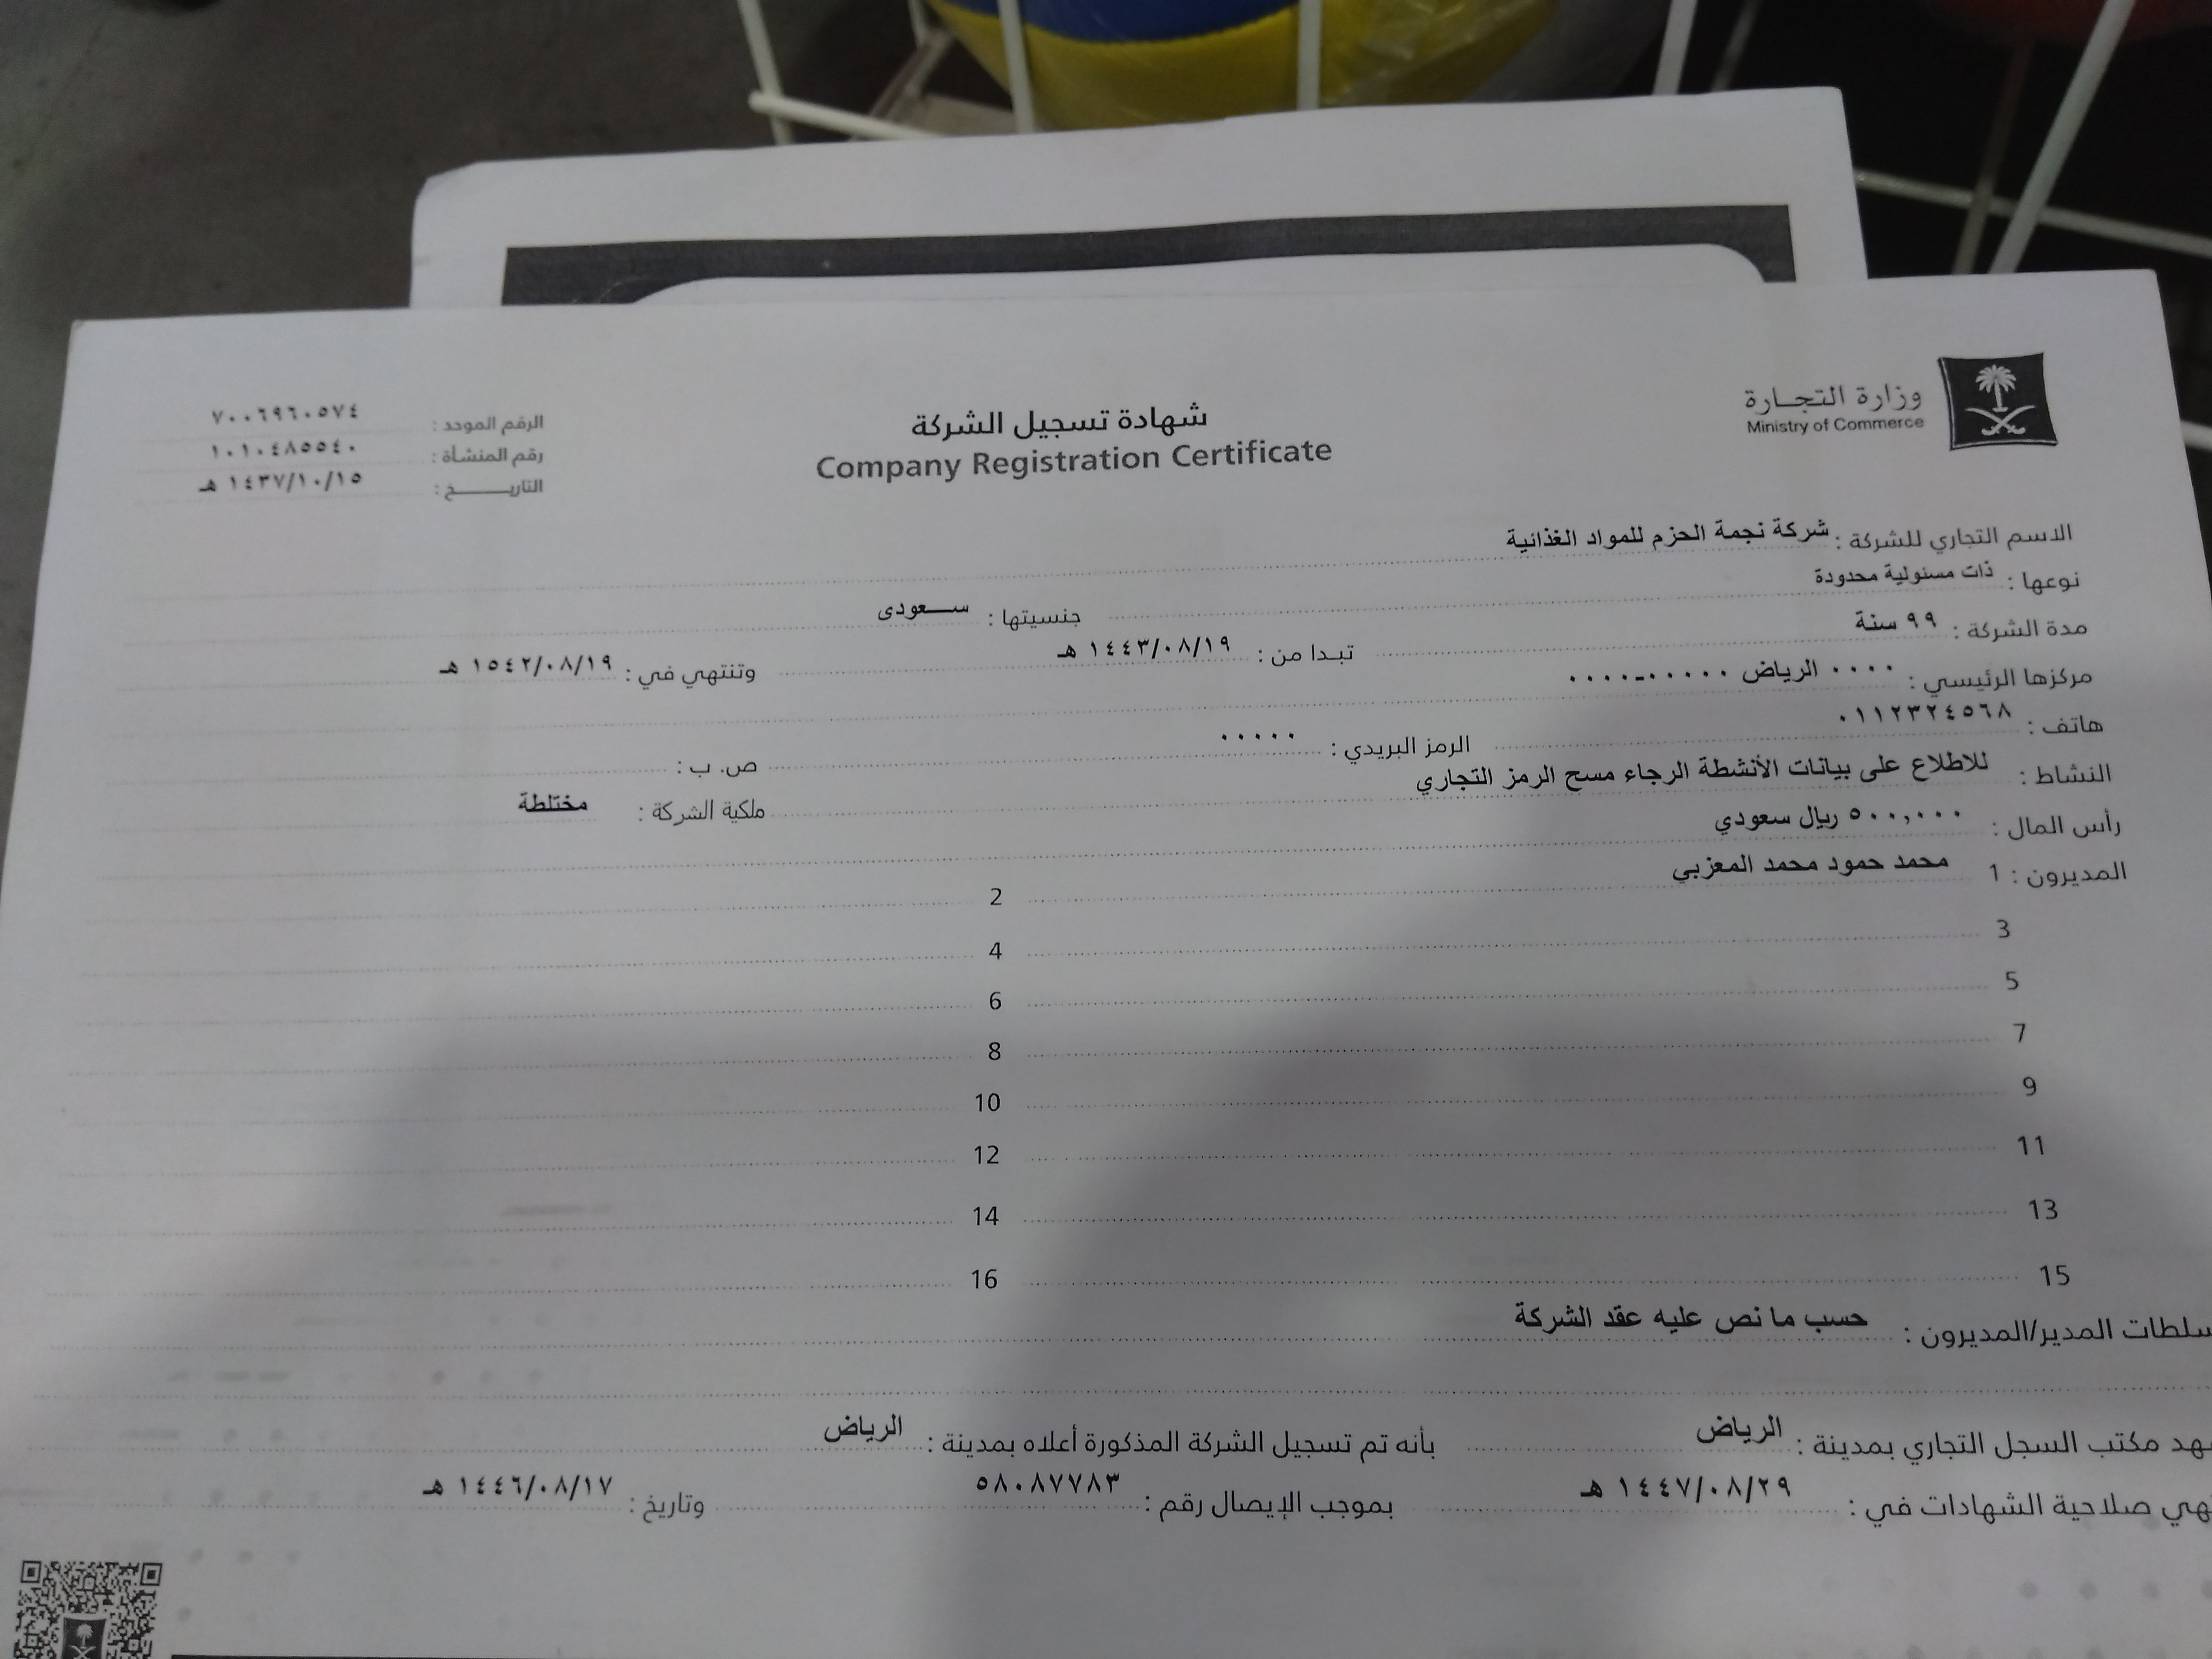 وزارة التجارة
Ministry of Commerce
شهادة تسجيل الشركة
Company Registration Certificate
الرقم الموحد : ٧٠٠٦٩٦٠٥٧٤
رقم المنشأة : ١٠١٠٤٨٥٥٤٠
التاريخ : ١٤٣٧/١٠/١٥ هـ
الاسم التجاري للشركة : شركة نجمة الحزم للمواد الغذائية
نوعها : ذات مسئولية محدودة جنسيتها : سعودى
مدة الشركة : ٩٩ سنة تبدا من : ١٤٤٣/٠٨/١٩ هـ وتنتهي في : ١٥٤٢/٠٨/١٩ هـ
مركزها الرئيسي : ٠٠٠٠ الرياض ٠٠٠٠٠-٠٠٠٠
هاتف : ٠١١٢٣٢٤٥٦٨ الرمز البريدي : ٠٠٠٠٠ ص. ب :
النشاط : للاطلاع على بيانات الأنشطة الرجاء مسح الرمز التجاري
رأس المال : ٥٠٠,٠٠٠ ريال سعودي ملكية الشركة : مختلطة
المديرون : 1 محمد حمود محمد المعزبي 2
3 4
5 6
7 8
9 10
11 12
13 14
15 16
سلطات المدير/المديرون : حسب ما نص عليه عقد الشركة
هد مكتب السجل التجاري بمدينة : الرياض بأنه تم تسجيل الشركة المذكورة أعلاه بمدينة : الرياض
هي صلاحية الشهادات في : ١٤٤٧/٠٨/٢٩ هـ بموجب الإيصال رقم : ٥٨٠٨٧٧٨٣ وتاريخ : ١٤٤٦/٠٨/١٧ هـ